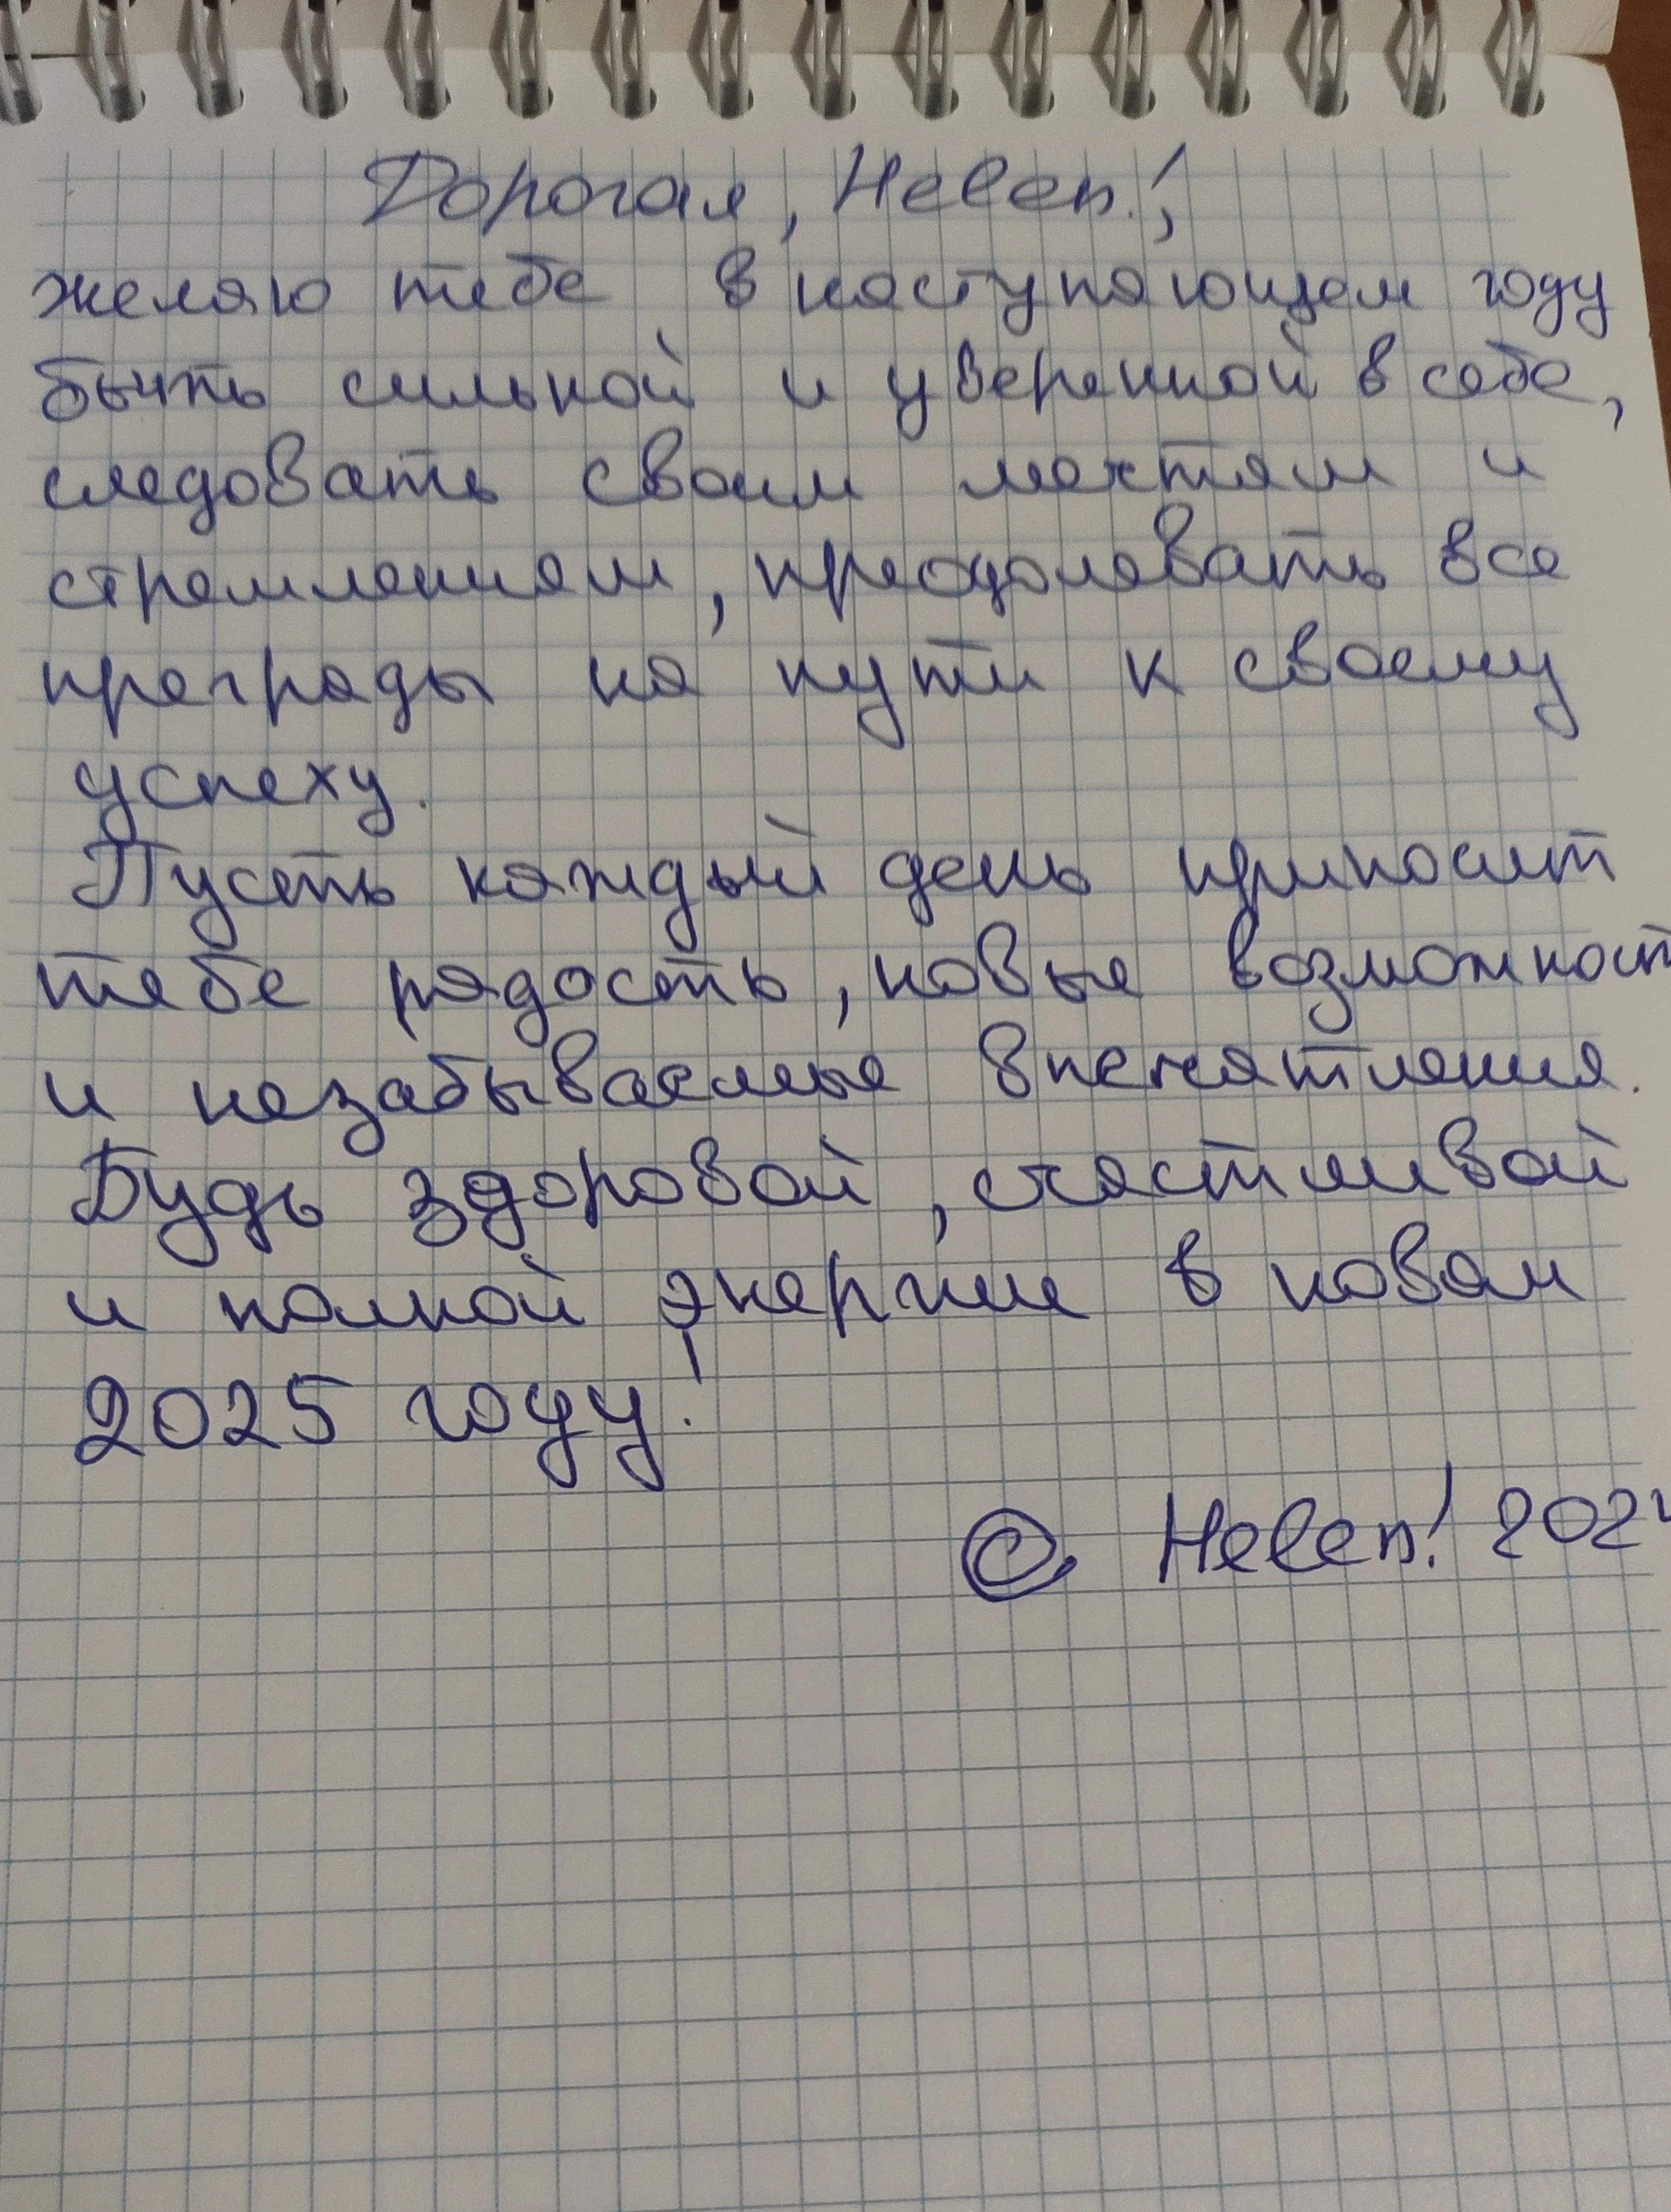 Дорогая, Helen!,
желаю тебе в наступающем году
быть сильной и уверенной в себе,
следовать своим мечтам и
стремлениям, преодолевать все
преграды на пути к своему
успеху.
Пусть каждый день приносит
тебе радость, новые возможност
и незабываемые впечатления.
Будь здоровой, счастливой
и полной энергии в новом
2025 году!
© Helen! 2024